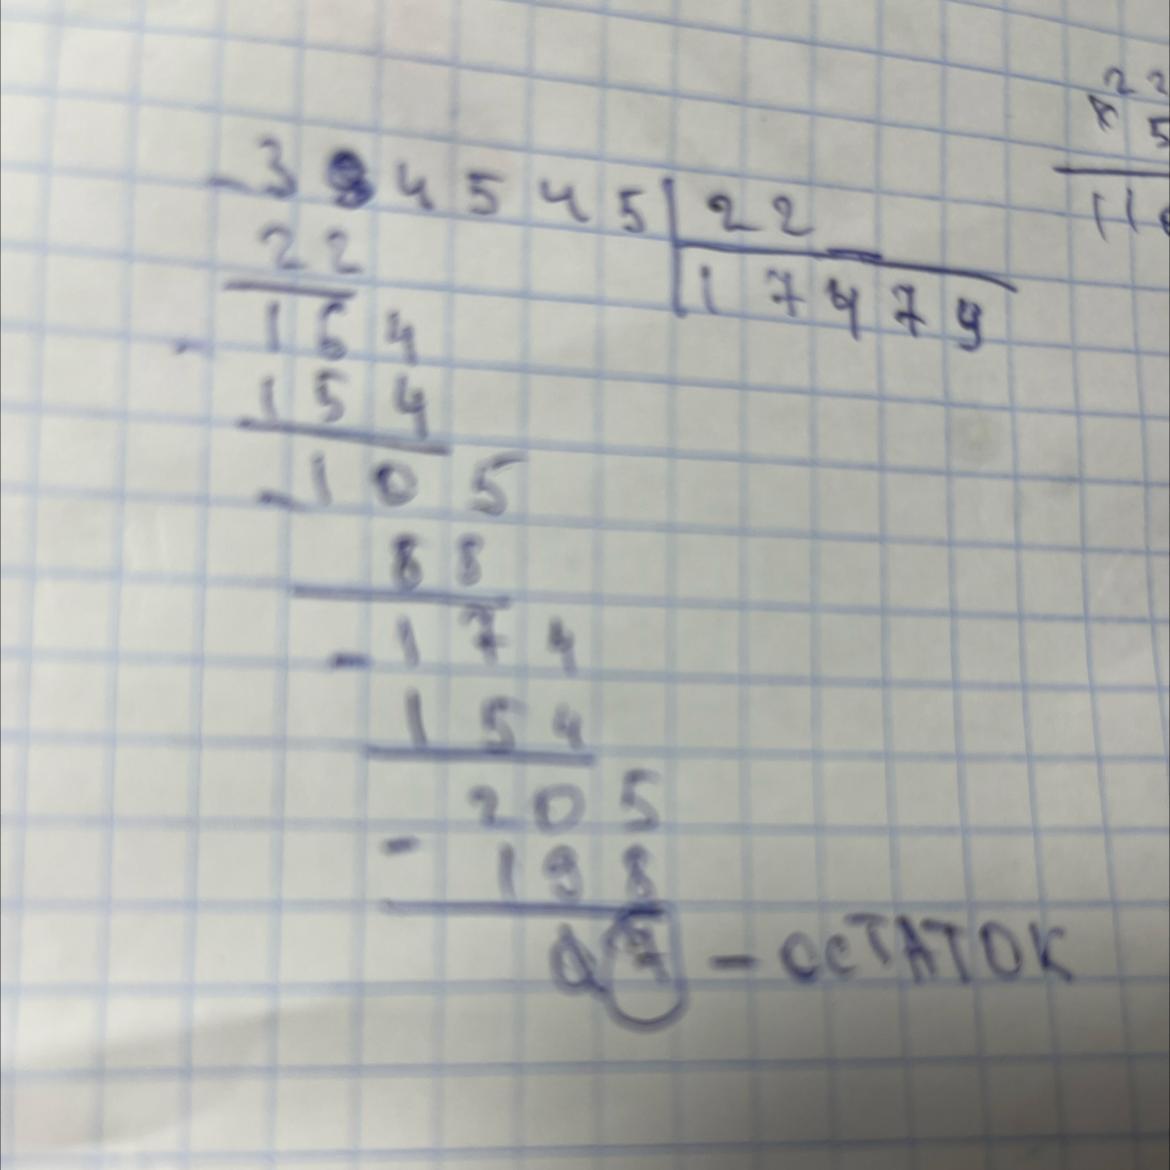 - 3 8 4 5 4 5 | 22
22
17479
- 164
154
- 105
88
- 174
154
- 205
198
07 - ОСТАТОК
22
× 5
110